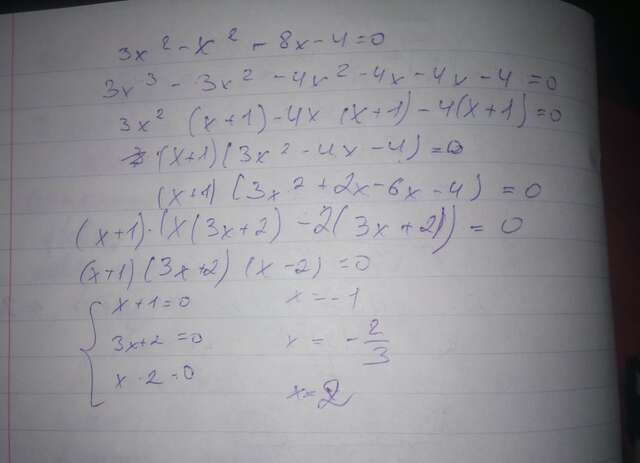 3x² - x² - 8x - 4 = 0
3x³ - 3x² - 4x² - 4x - 4x - 4 = 0
3x² (x+1) - 4x (x+1) - 4(x+1) = 0
(x+1) (3x² - 4x - 4) = 0
(x+1) (3x² + 2x - 6x - 4) = 0
(x+1)·(x(3x+2) - 2(3x+2)) = 0
(x+1) (3x+2) (x-2) = 0
x+1=0 x=-1
3x+2=0 x = -2/3
x-2=0 x=2